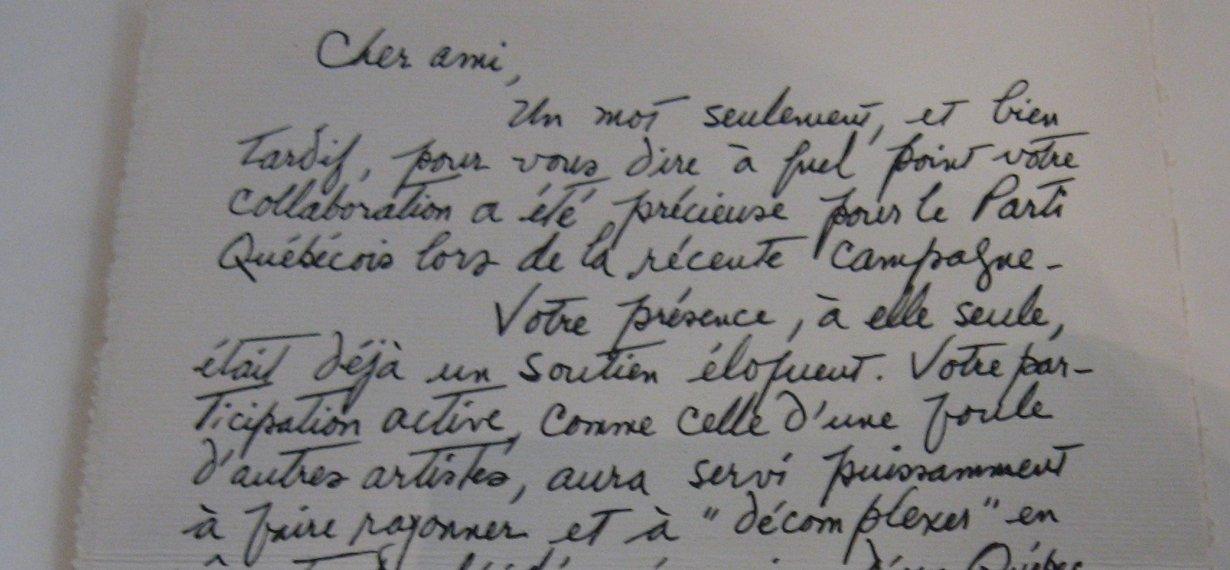 Cher ami,
Un mot seulement, et bien
tardif, pour vous dire à quel point votre
collaboration a été précieuse pour le Parti
Québécois lors de la récente campagne -
Votre présence, à elle seule,
était déjà un soutien éloquent. Votre par-
ticipation active, comme celle d'une foule
d'autres artistes, aura servi puissamment
à faire rayonner et à "décomplexer" en
d'un Québec